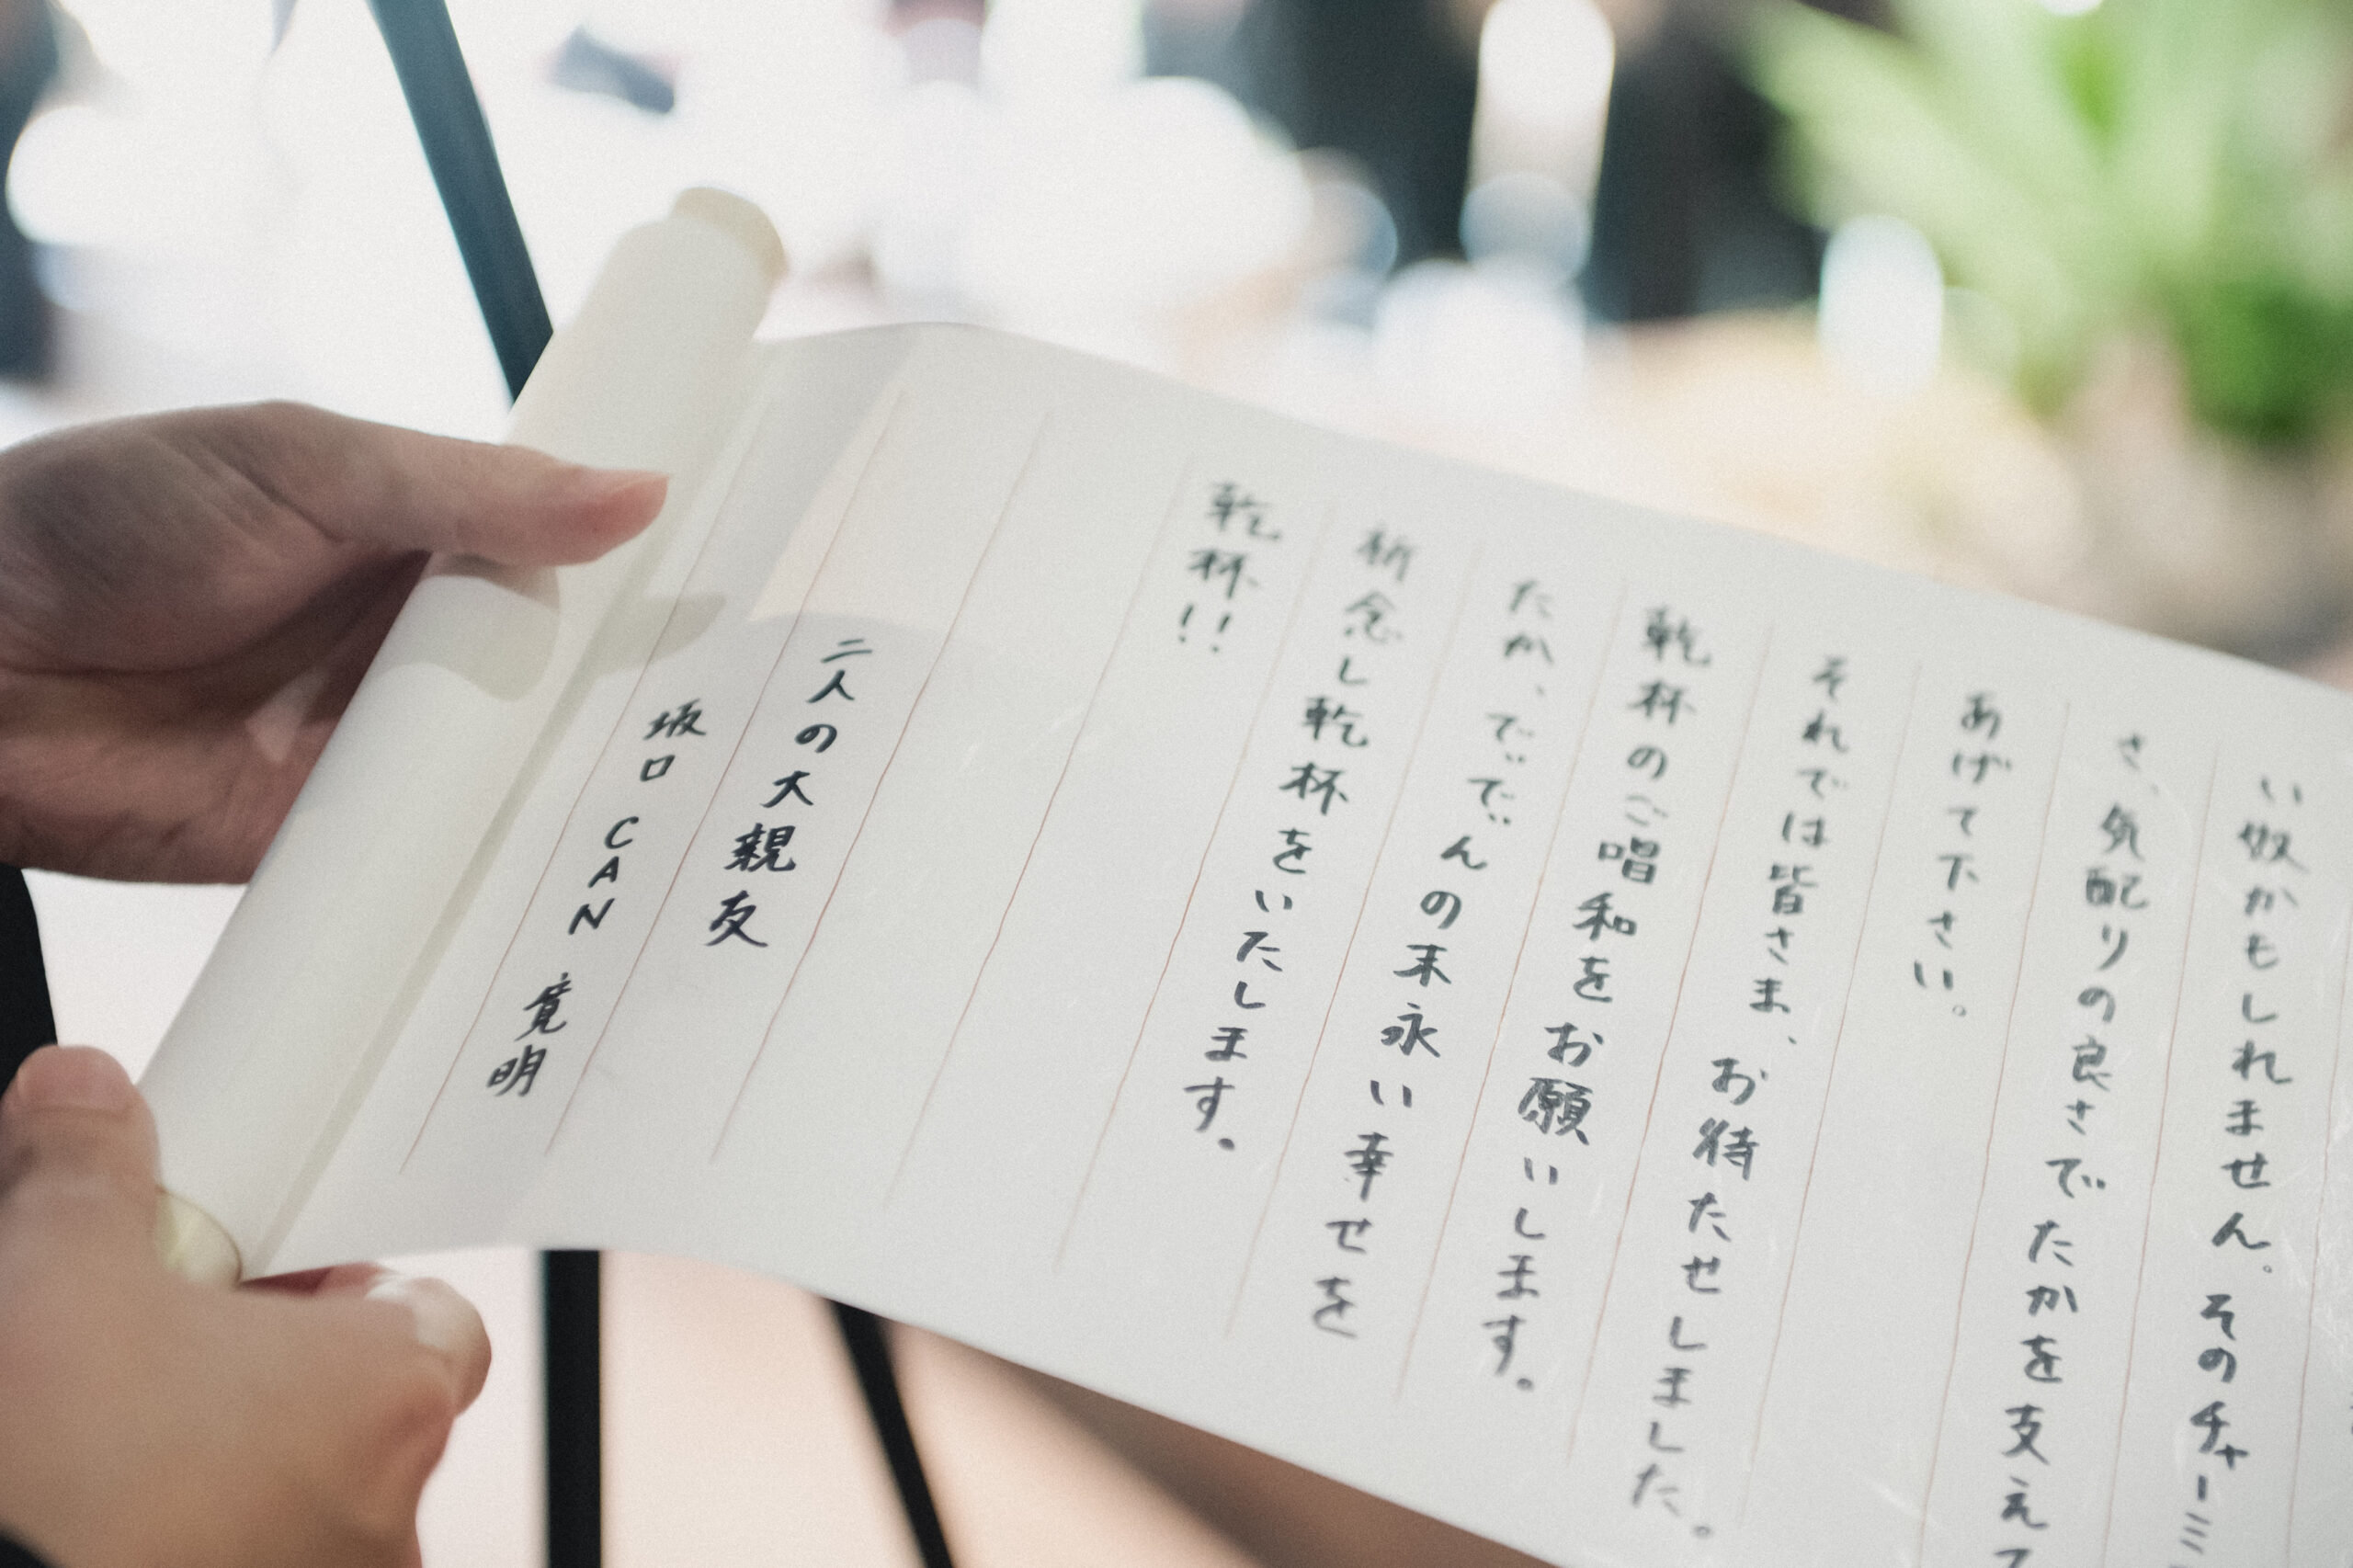 い奴かもしれません。そのチャーミ
さ、気配りの良さでたかを支えて
あげて下さい。
それでは皆さま、お待たせしました。
乾杯のご唱和をお願いします。
たか、でぃでぃんの末永い幸せを
祈念し乾杯をいたします。
乾杯!!
二人の大親友
坂口 CAN 寛明